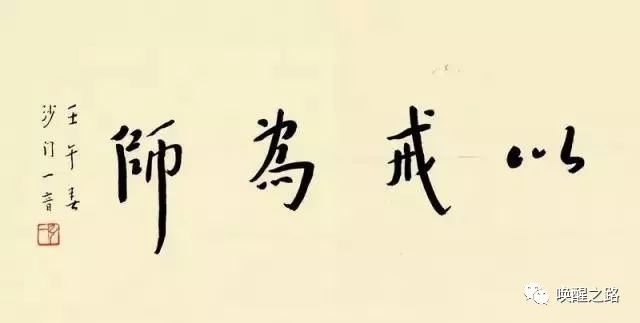 以戒為師
壬午春
沙门一音
唤醒之路